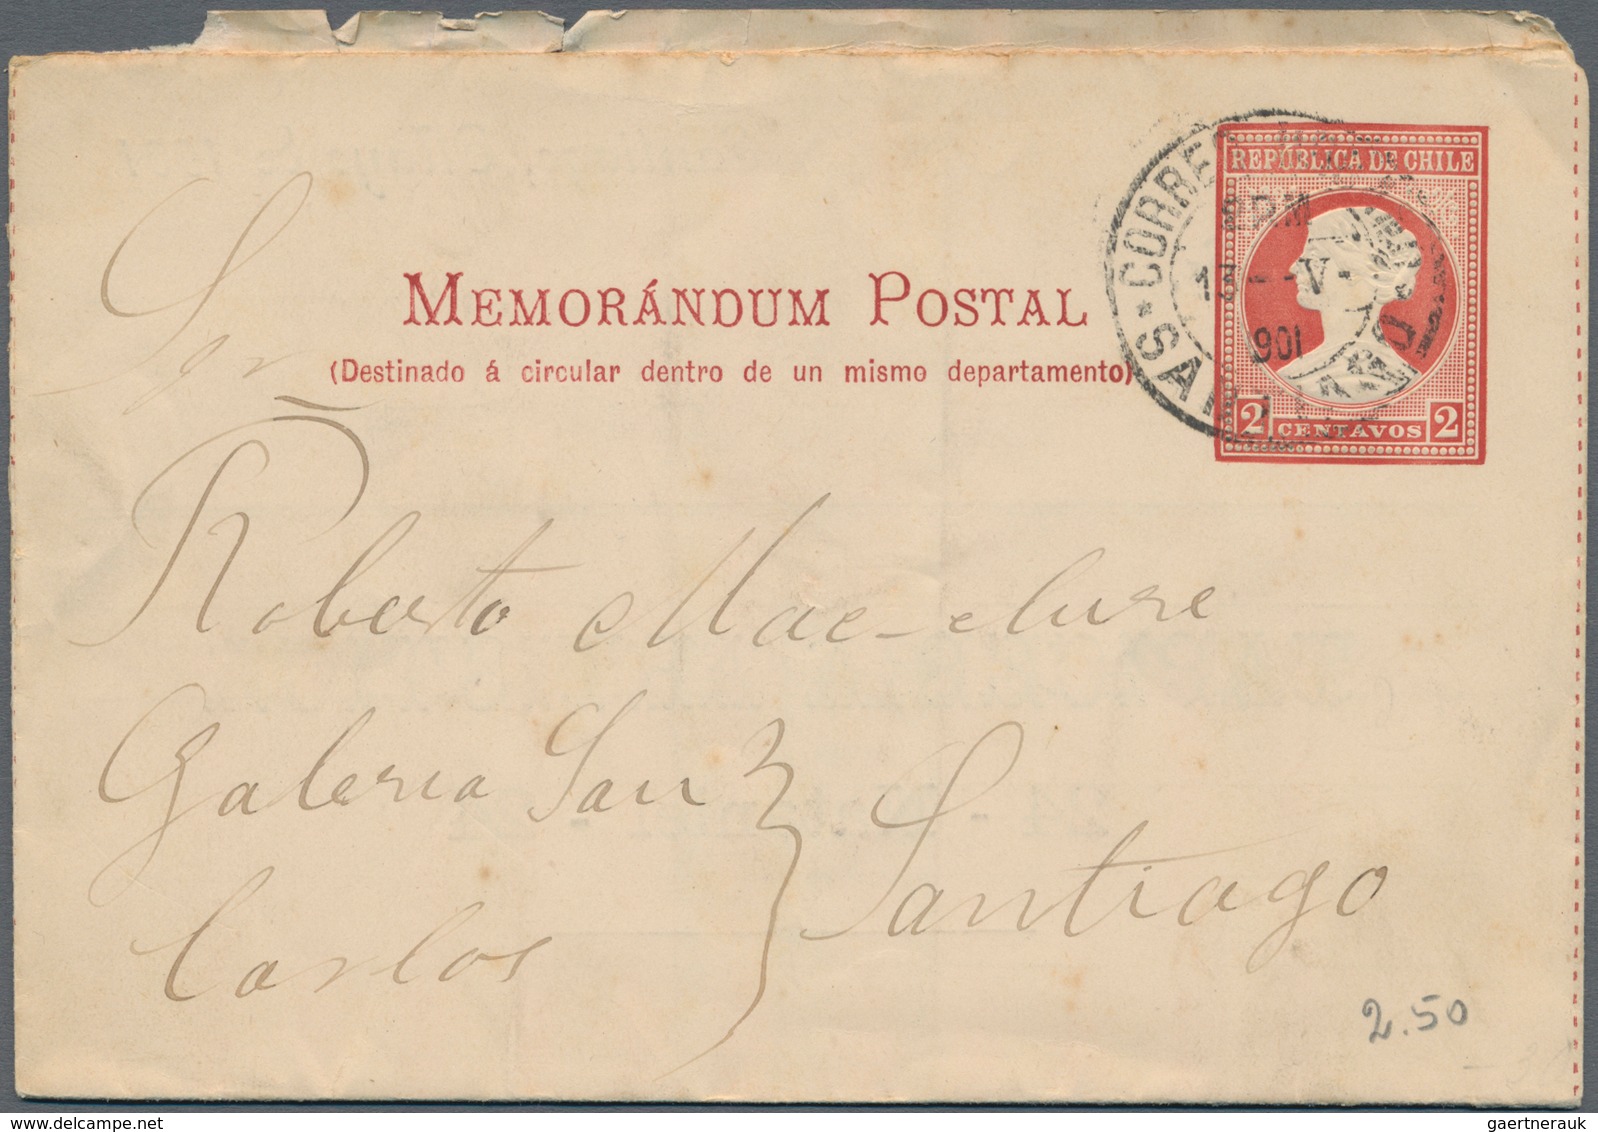 REPÚBLICA DE CHILE
CORREO
13 - V -
901
2 CENTAVOS 2
MEMORÁNDUM POSTAL
(Destinado á circular dentro de un mismo departamento)
Sor
Roberto Mac-clure
Galeria San
Carlos
Santiago
2.50
gaertnerauk @ www.delcampe.net